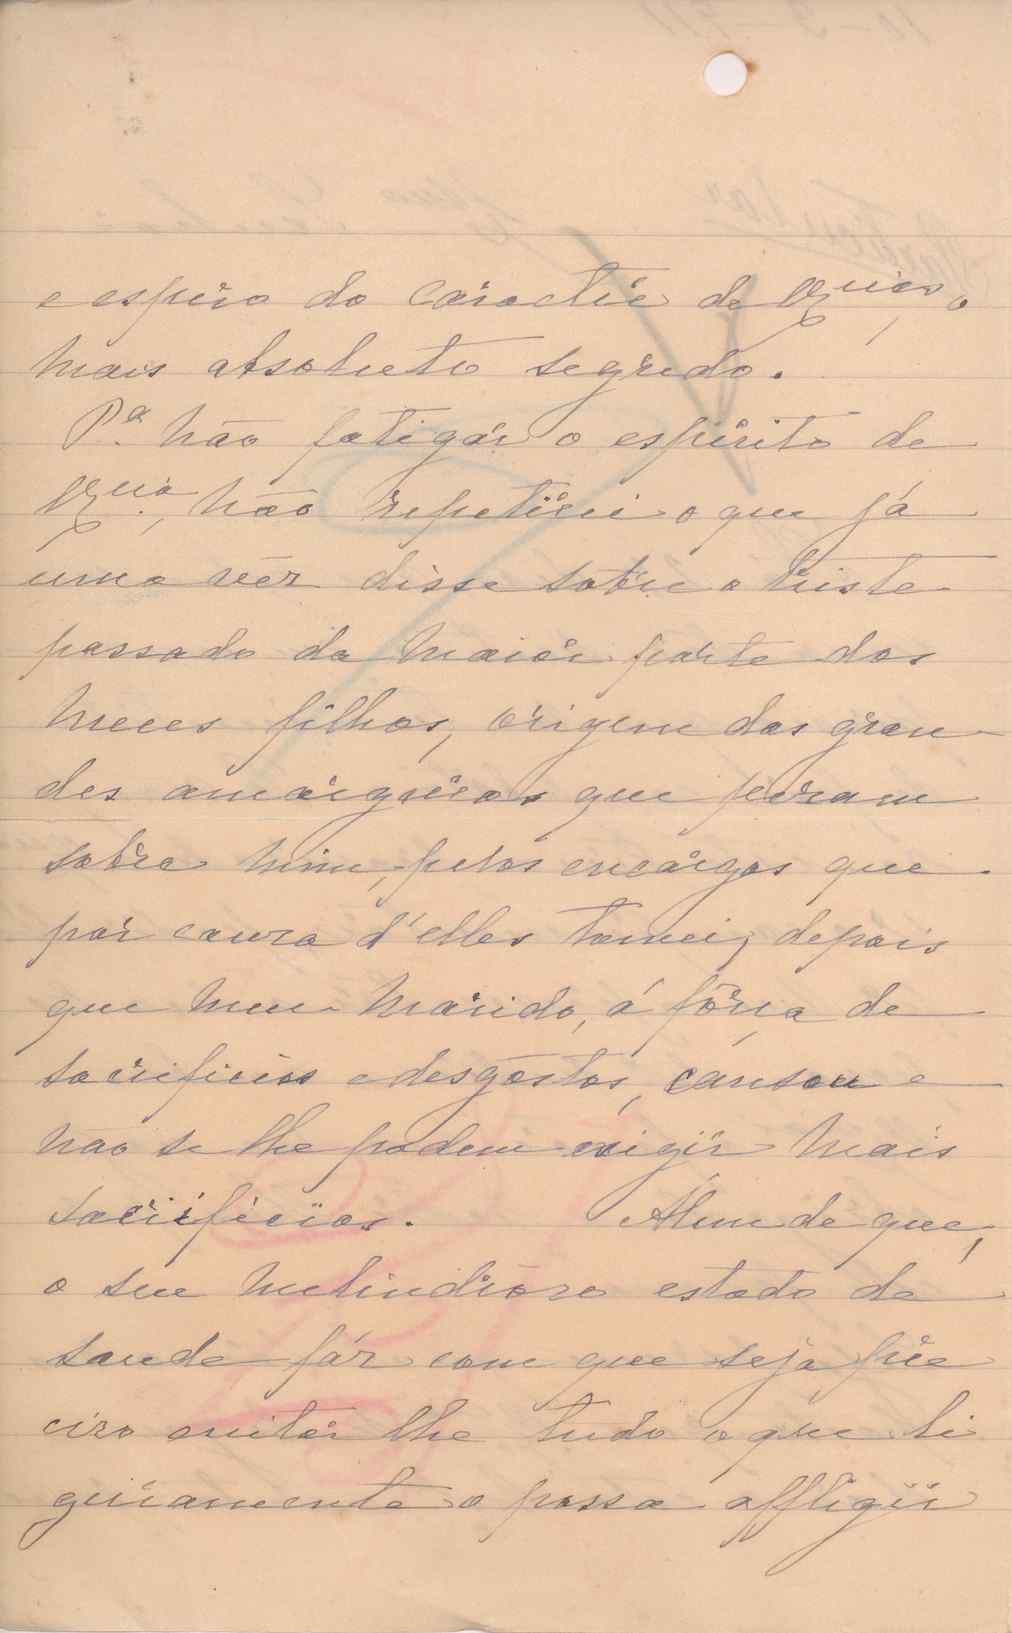 e espero do caracter de V. Excias, o
mais absoluto segredo.
Pª não fatigar o espirito de
V. Excia, não repetirei o que já
uma vez disse sobre o triste
passado da maior parte dos
meus filhos, origem das gran-
des amarguras que pesam
sobre mim, pelos encargos que
por causa d'elles tomei, depois
que meu marido, á fôrça de
sacrificios e desgostos, cansou e
não se lhe podem exigir mais
sacrificios. Alem de que,
o seu melindroso estado de
saude faz com que seja pre
ciso evitar lhe tudo o que li
geiramente o possa affligir